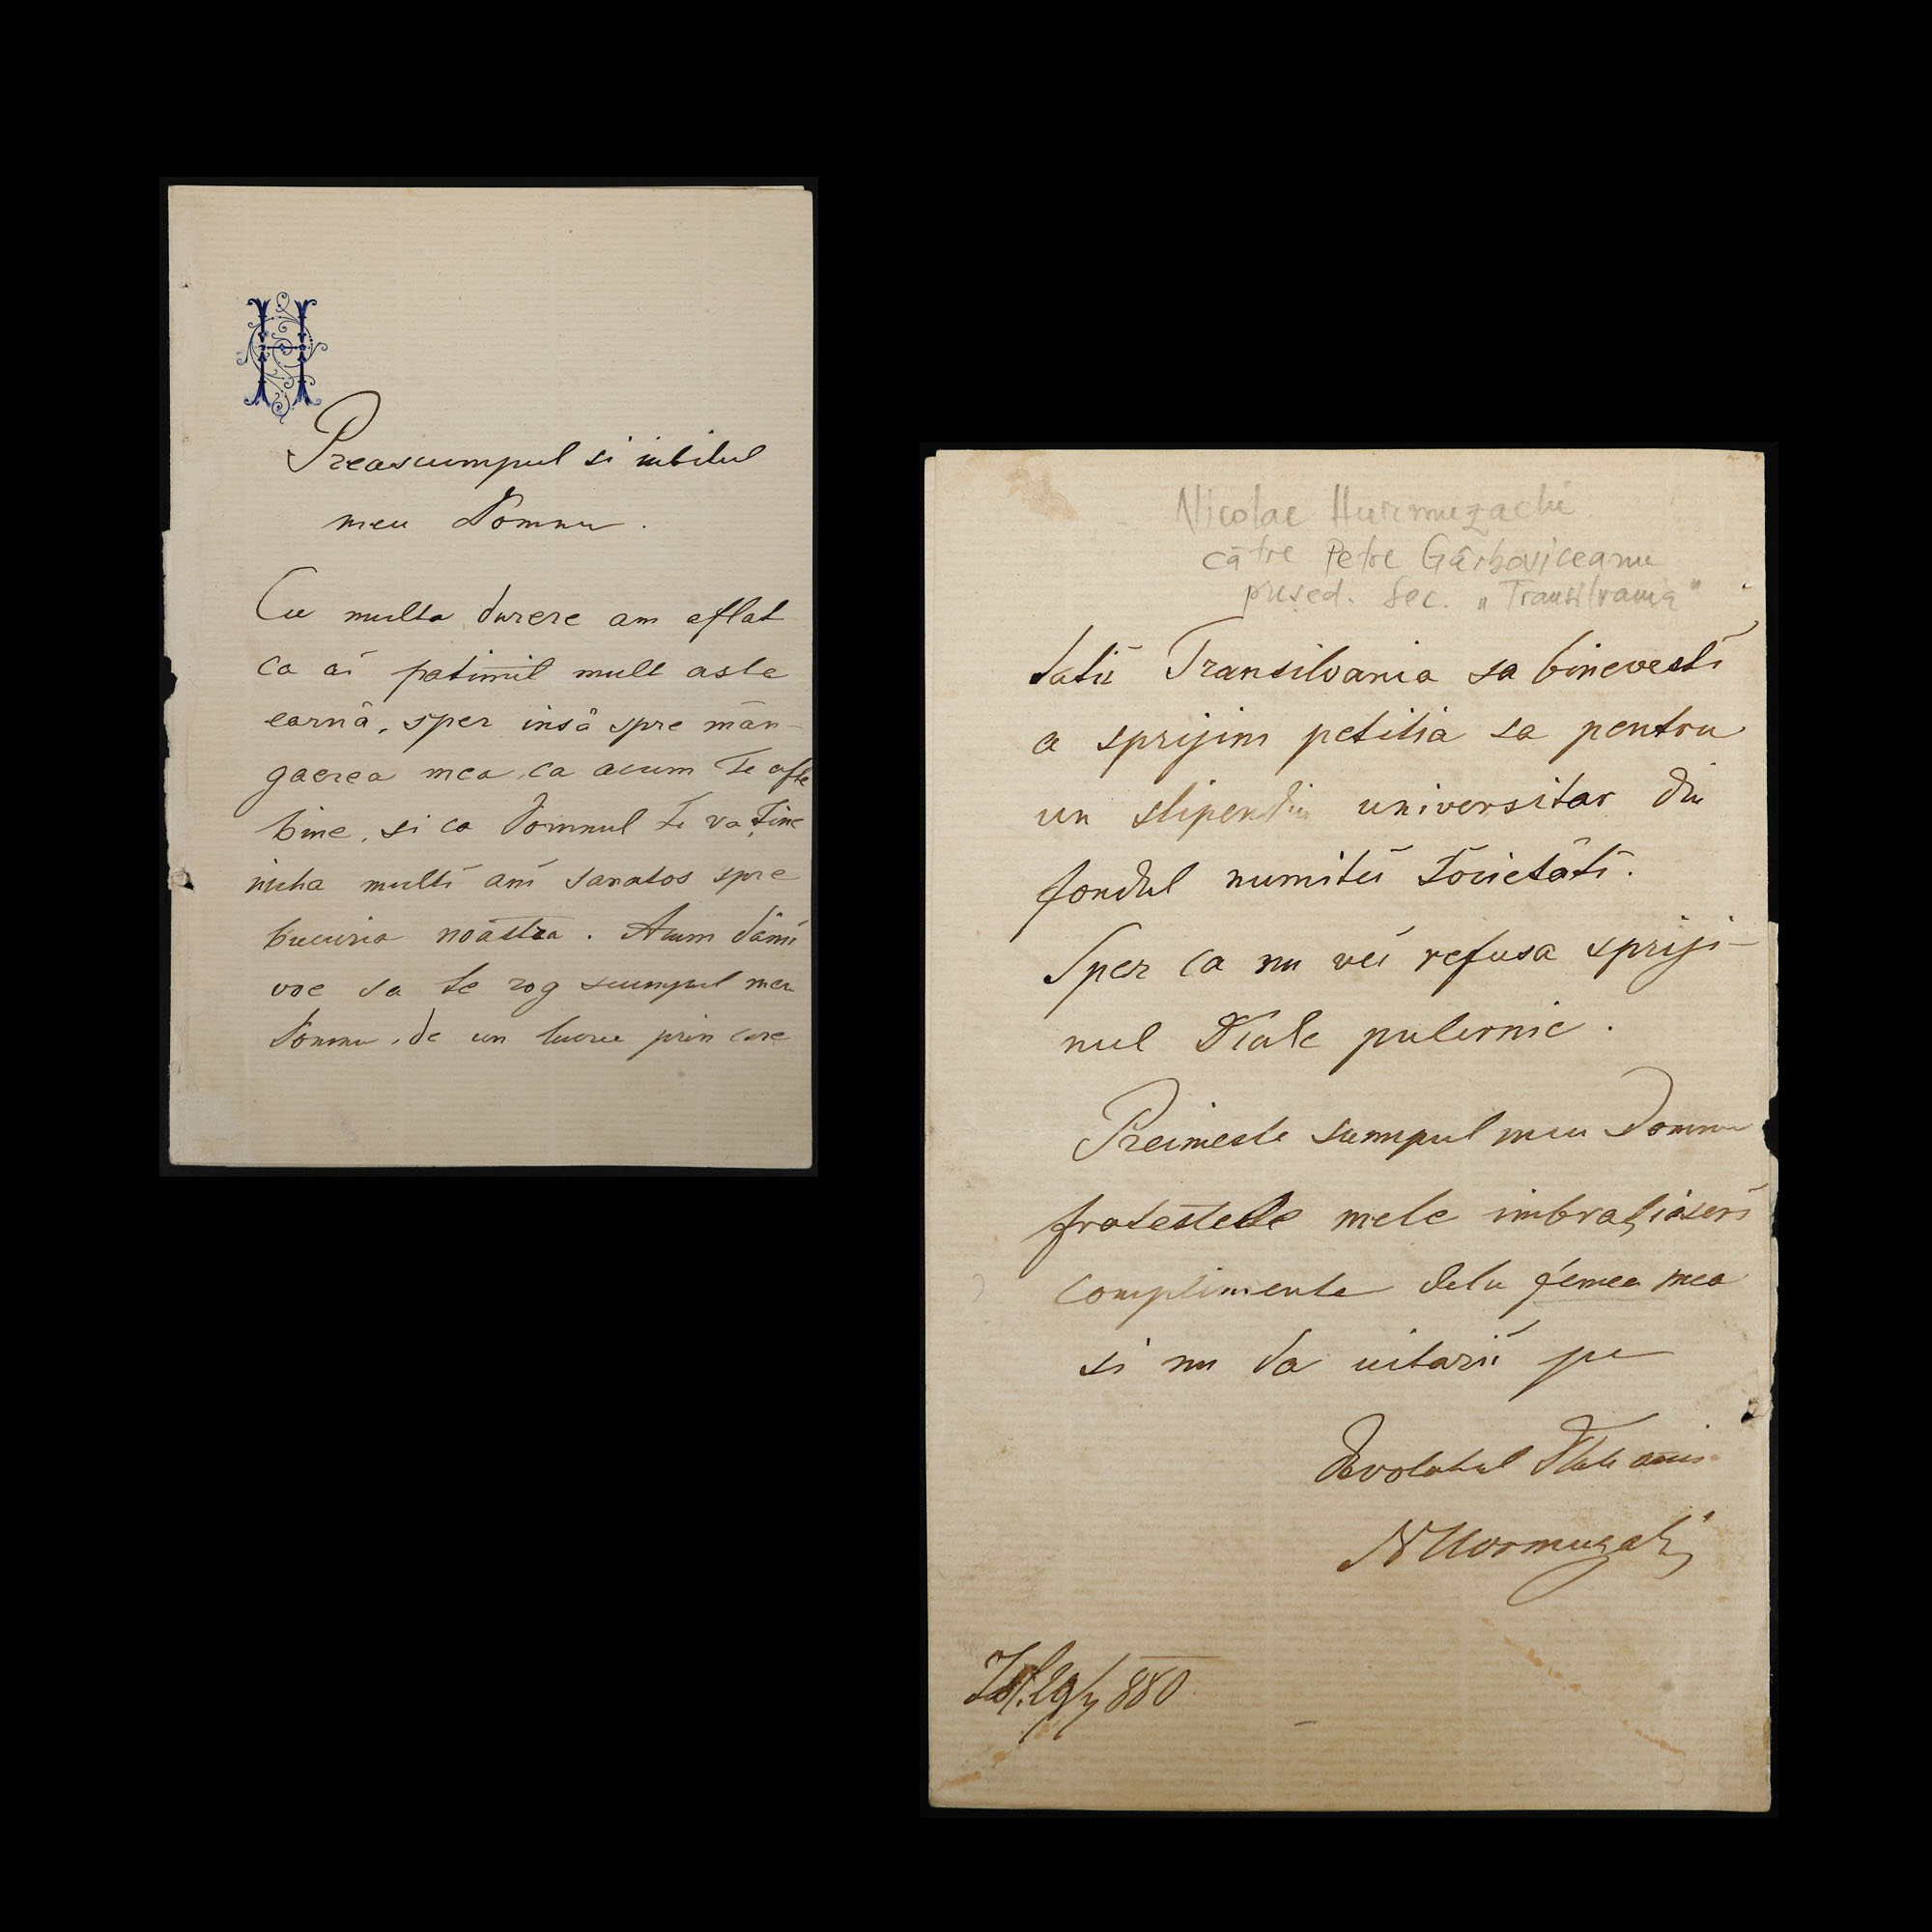 H
Preascumpul si iubitul
meu Domnu.
Cu multa durere am aflat
ca ai patimit mult asta
earnă, sper insă spre măn-
gaerea mea, ca acum te afle
bine, si ca Domnul te va ține
inca multi ani sanatos spre
bucuria noastra. Acum dămi
voe sa te rog scumpul meu
Domnu, de un lucru prin care
Nicolae Hurmuzachi
către Petre Gârboviceanu
președ. Soc. „Transilvania"
tatii Transilvania sa binevesti
a sprijini petitia sa pentru
un stipendiu universitar din
fondul numitei Societăti.
Sper ca nu vei refusa spriji-
nul Tale puternic.
Preimeste scumpul meu Domnu
fratestele mele imbrațiaseri
complimente dela femea mea
si nu da uitarii pe
devotatul Tale amic
NHormuzaki
29/7 880